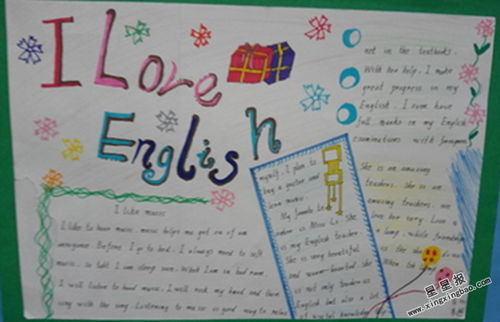 I Love
English
I like music
I like to hear music. music helps me get on of am
unvigence. Before I go to bed. I always need to soft
music. so taht I can sleep soon. What I am in bad name.
I will listen to hand music. I will rock my hand and then
sing with the song. Listening music is good way to relax
myself. I plan to
buy a guitar and
learn music.
My favorite te
acher is Miss Lu. She
is my English teacher.
She is very beautiful
and warm-hearted. She
is not only teaches
English but also a lot
of useful knowledge
not in the textbooks.
With her help, I make
great progress in my
English. I even have
full marks on my English
examinations with foreigners
She is an amazing
teachers. she is an
amazing teachers. we
love her very. Love is
a lamp, while friendship
is the shadow
When the
星星报
www.xingxingbao.com